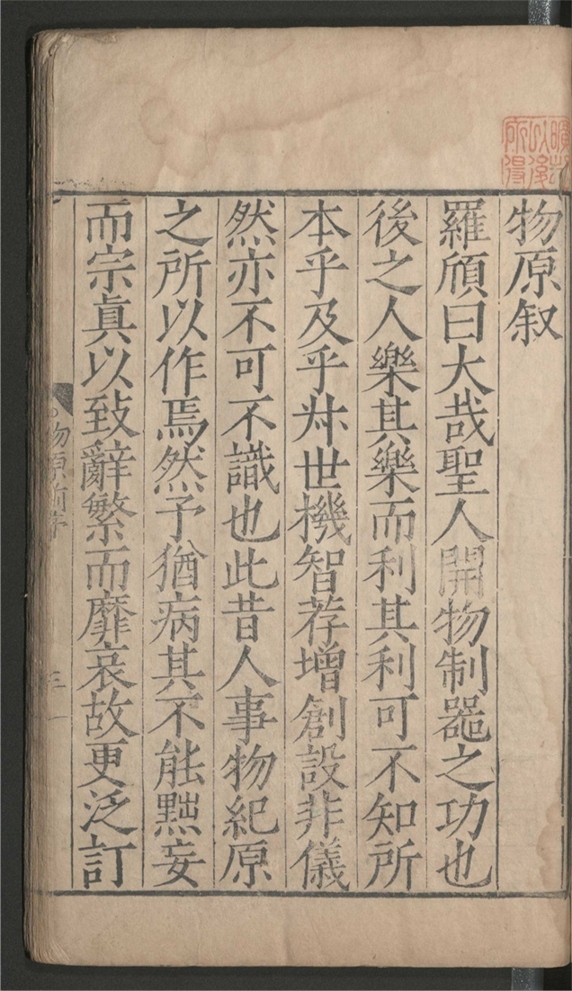 以後
所得
物原叙
羅頎曰大哉聖人開物制噐之功也
後之人樂其樂而利其利可不知所
本乎及乎叔世機智荐增創設非儀
然亦不可不識也此昔人事物紀原
之所以作焉然予猶病其不能黜妄
而宗眞以致辭繁而靡衷故更泛訂
物原前序